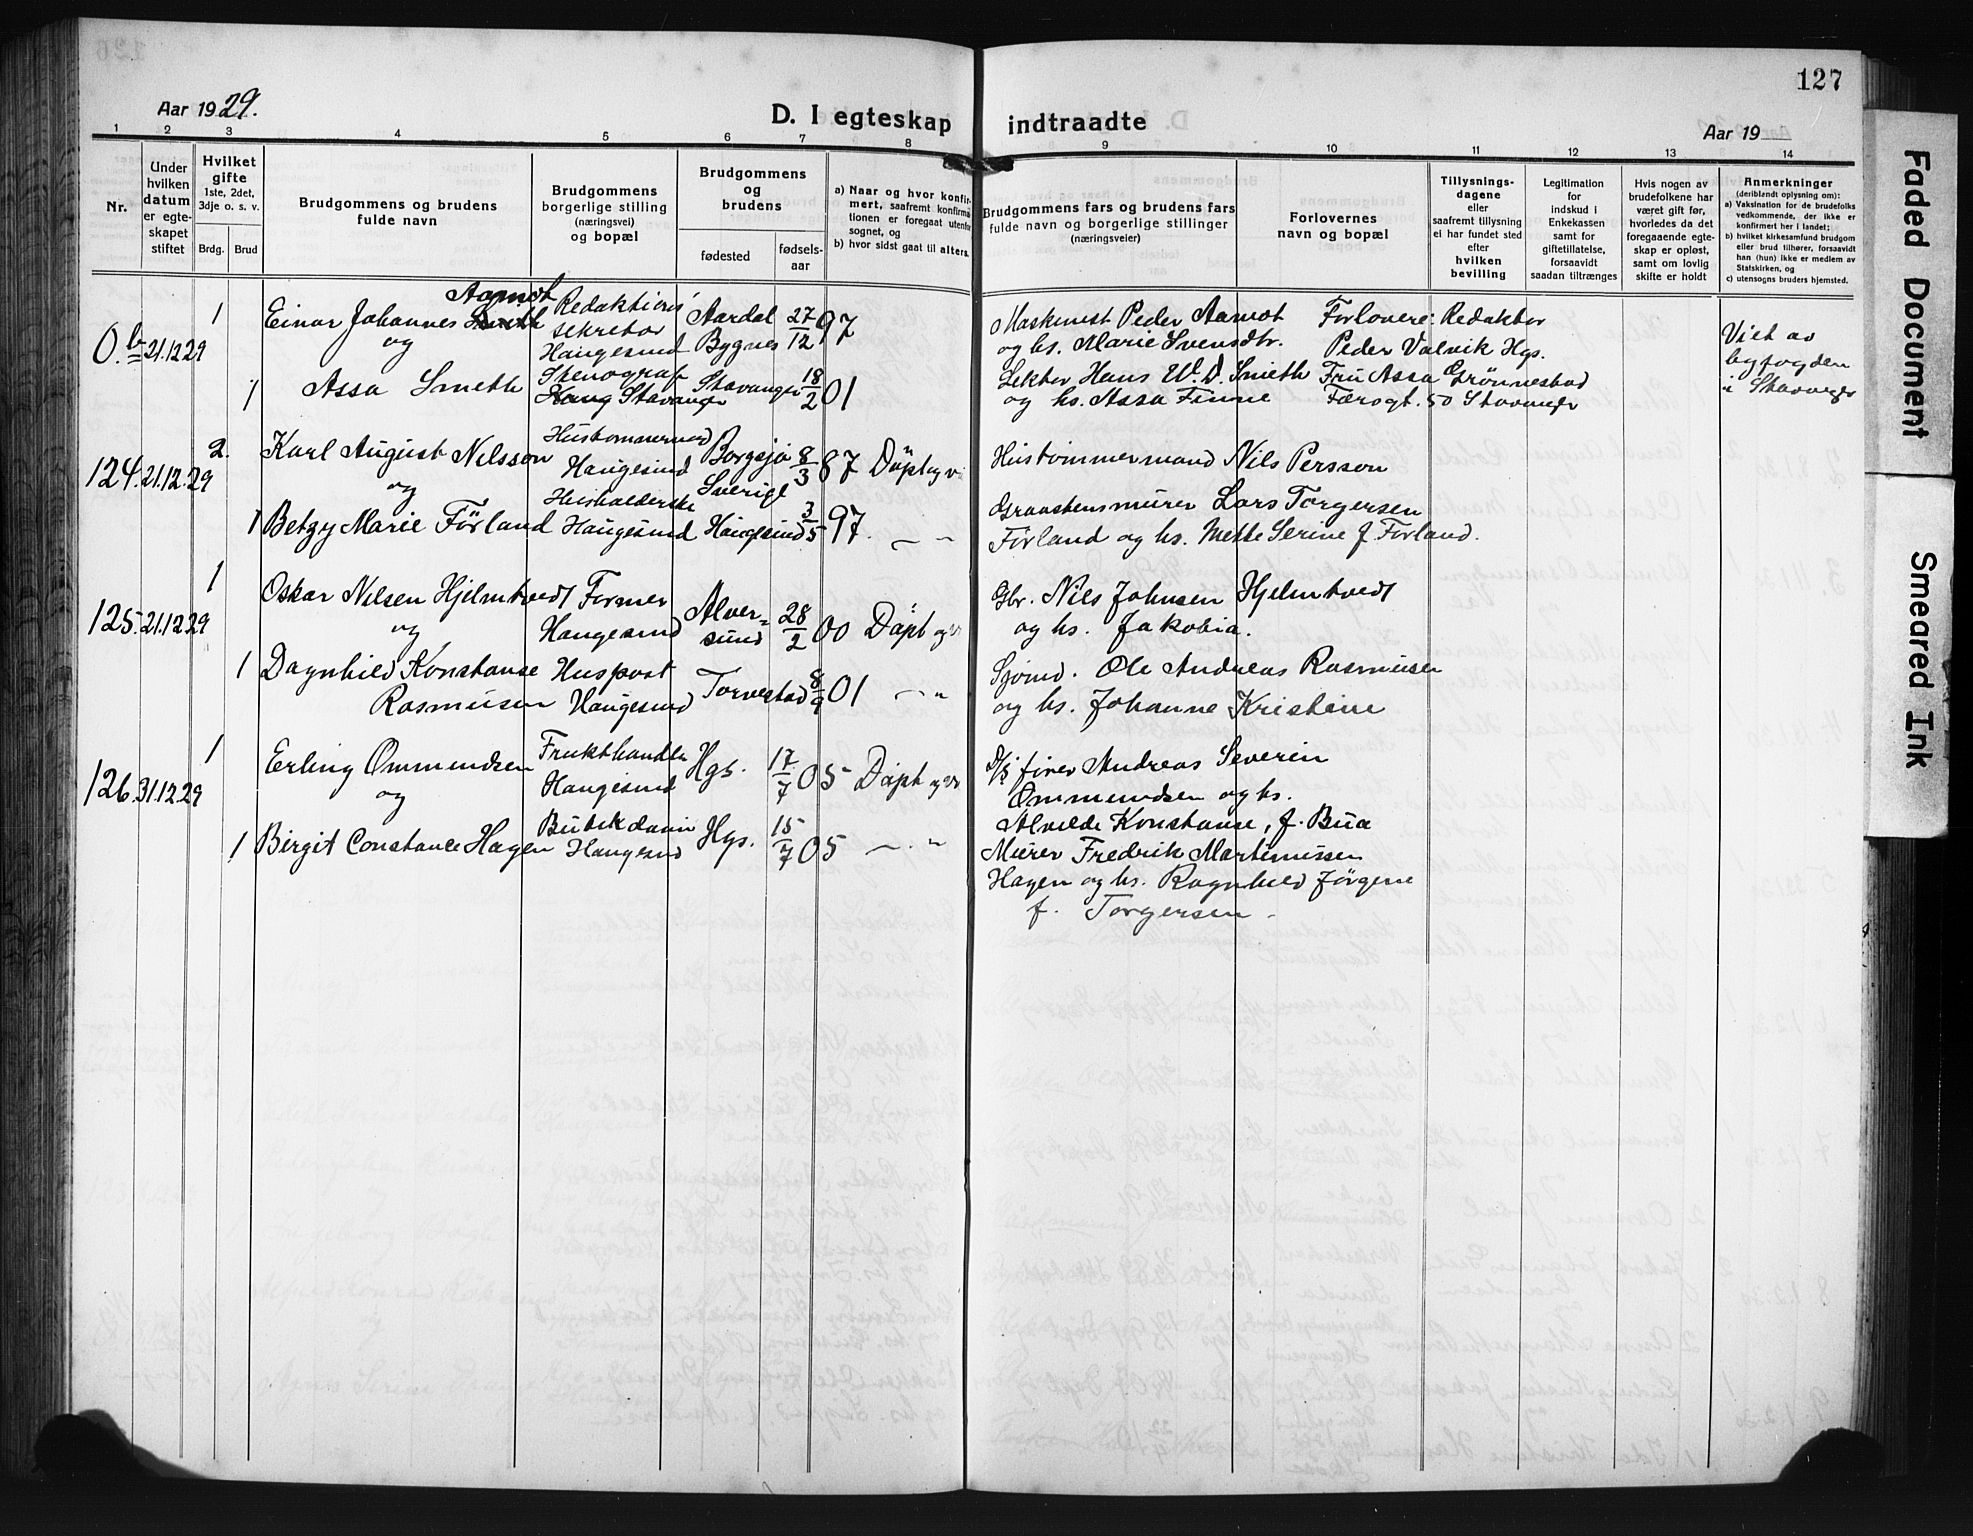 127
Aar 1929.
D. I egteskap indtraadte
Aar 19
1 2 3 4 5 6 7 8 9 10 11 12 13 14
Nr.
Under
hvilken
datum
er egte-
skapet
stiftet
Hvilket
gifte
1ste, 2det,
3dje o. s. v.
Brdg. Brud
Brudgommens og brudens
fulde navn
Brudgommens
borgerlige stilling
(næringsvei)
og bopæl
Brudgommens
og
brudens
fødested
fødsels-
aar
a) Naar og hvor konfir-
mert, saafremt konfirma-
tionen er foregaat utenfor
sognet, og
b) hvor sidst gaat til alters.
Brudgommens fars og brudens fars
fulde navn og borgerlige stillinger
(næringsveier)
Forlovernes
navn og bopæl
Tillysnings-
dagene
eller
saafremt tillysning
ei har fundet sted
efter
hvilken
bevilling
Legitimation
for
indskud i
Enkekassen
samt for
giftetillatelse,
forsaavidt
saadan tiltrænges
Hvis nogen av
brudefolkene har
været gift før,
hvorledes da det
foregaaende egte-
skap er opløst,
samt om lovlig
skifte er holdt
Anmerkninger
(deriblandt oplysning om):
a) Vaksination for de brudefolks
vedkommende, der ikke er
konfirmert her i landet;
b) hvilket kirkesamfund brudgom
eller brud tilhører, forsaavidt
han (hun) ikke er medlem av
Statskirken, og
c) utensogns bruders hjemsted.
0.b 21.12.29
1
Aamot
Einar Johannes Smeth
og
Redaktions
sekretær
Haugesund
Aardal
Bygnes
27/12 97
Maskinist Peder Aamot
og hs. Marie Svensdtr.
Forlovere: Redaktør
Peder Valvik Hgs.
Viet av
byfogden
i Stavanger
1
Assa Smeth
Stenograf
Haug Stavanger
Stavanger
18/2 01
Lektor Hans W. D. Smeth
og hs. Assa Finne
Fru Assa Grønnestad
Færogt. 50 Stavanger
124. 21.12.29
2.
Karl August Nilsson
og
Hustømmermand
Haugesund
Borgsjø
Sverige
8/3 87 Døpt og v
Hustømmermand Nils Persson
1
Betzy Marie Förland
Husholderske
Haugesund
Haugesund
3/5 97. — "
Graastensmurer Lars Torgersen
Förland og hs. Mette Serine f. Förland.
125. 21.12.29
1
Oskar Nilsen Hjelmtvedt
og
Former
Haugesund
Alver-
sund
28/2 00 Döpt og v
Gbr. Nils Johnsen Hjelmtvedt
og hs. Jakobia.
1
Dagnhild Konstanse
Rasmussen
Huspost
Haugesund
Torvestad
8/9 01 — "
Sjömd. Ole Andreas Rasmussen
og hs. Johanne Kristine
126. 31.12.29
1
Erling Ommundsen
og
Frukthandler
Haugesund
Hgs.
17/7 05 Döpt og v
D/s fører Andreas Severin
Ommundsen og hs.
Alvilde Konstanse, f. Bua
1
Birgit Constance Hagen
Butikdame
Haugesund
Hgs.
15/7 05 — . "
Murer Fredrik Martinussen
Hagen og hs. Ragnhild Jörgine
f. Torgersen
Faded Document
Smeared Ink